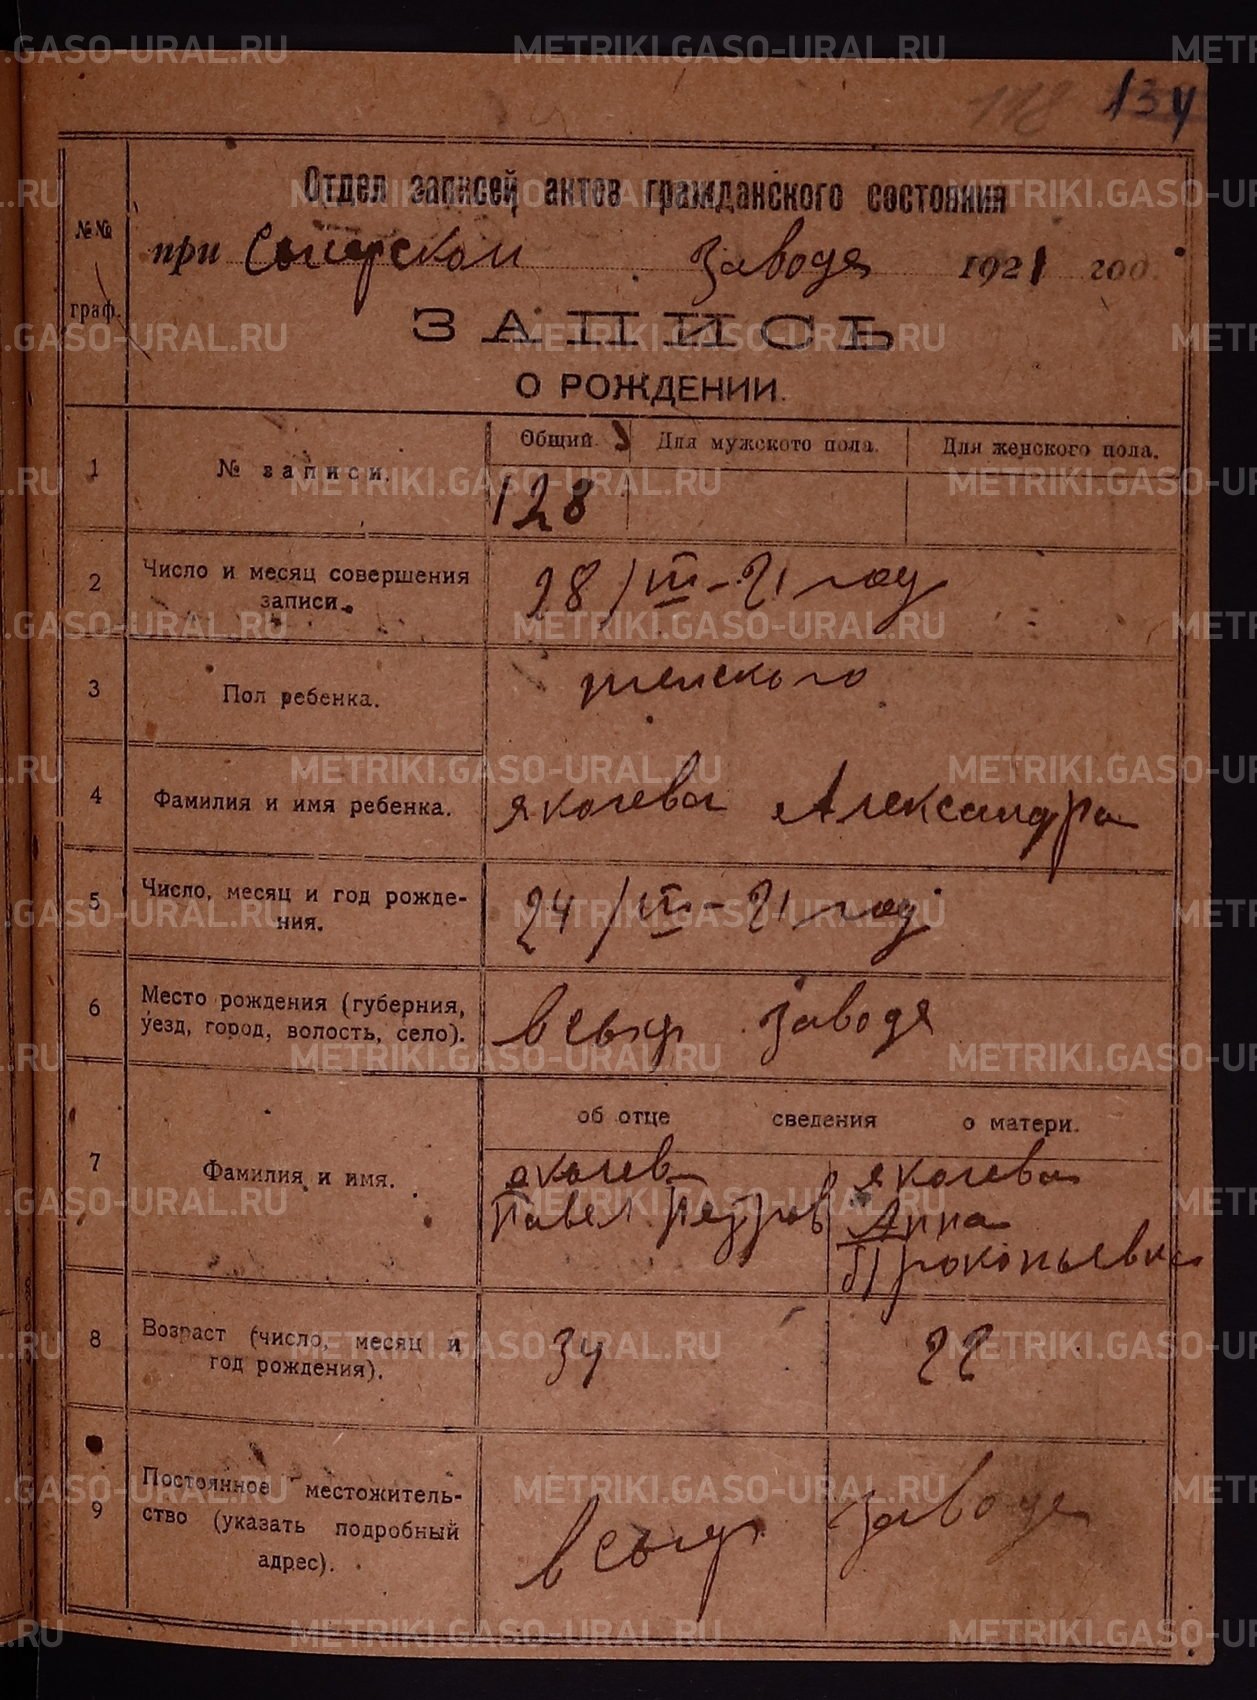 118 134
Отдел записей актов гражданского состояния
№№
граф.
при Сысерском заводе 1921 год.
ЗАПИСЬ
О РОЖДЕНИИ.
1 № записи. Общий. Для мужского пола. Для женского пола.
128
2 Число и месяц совершения
записи. 28/III-21 году
3 Пол ребенка. женского
4 Фамилия и имя ребенка. яколева Александра
5 Число, месяц и год рожде-
ния. 24/III-21 году
6 Место рождения (губерния,
уезд, город, волость, село). в сыср заводе
об отце сведения о матери.
7 Фамилия и имя.
яколев яколева
Павел Петров Анна
Прокопьевна
8 Возраст (число, месяц и
год рождения). 34 22
9 Постоянное местожитель-
ство (указать подробный
адрес). в сыср заводе
METRIKI.GASO-URAL.RU